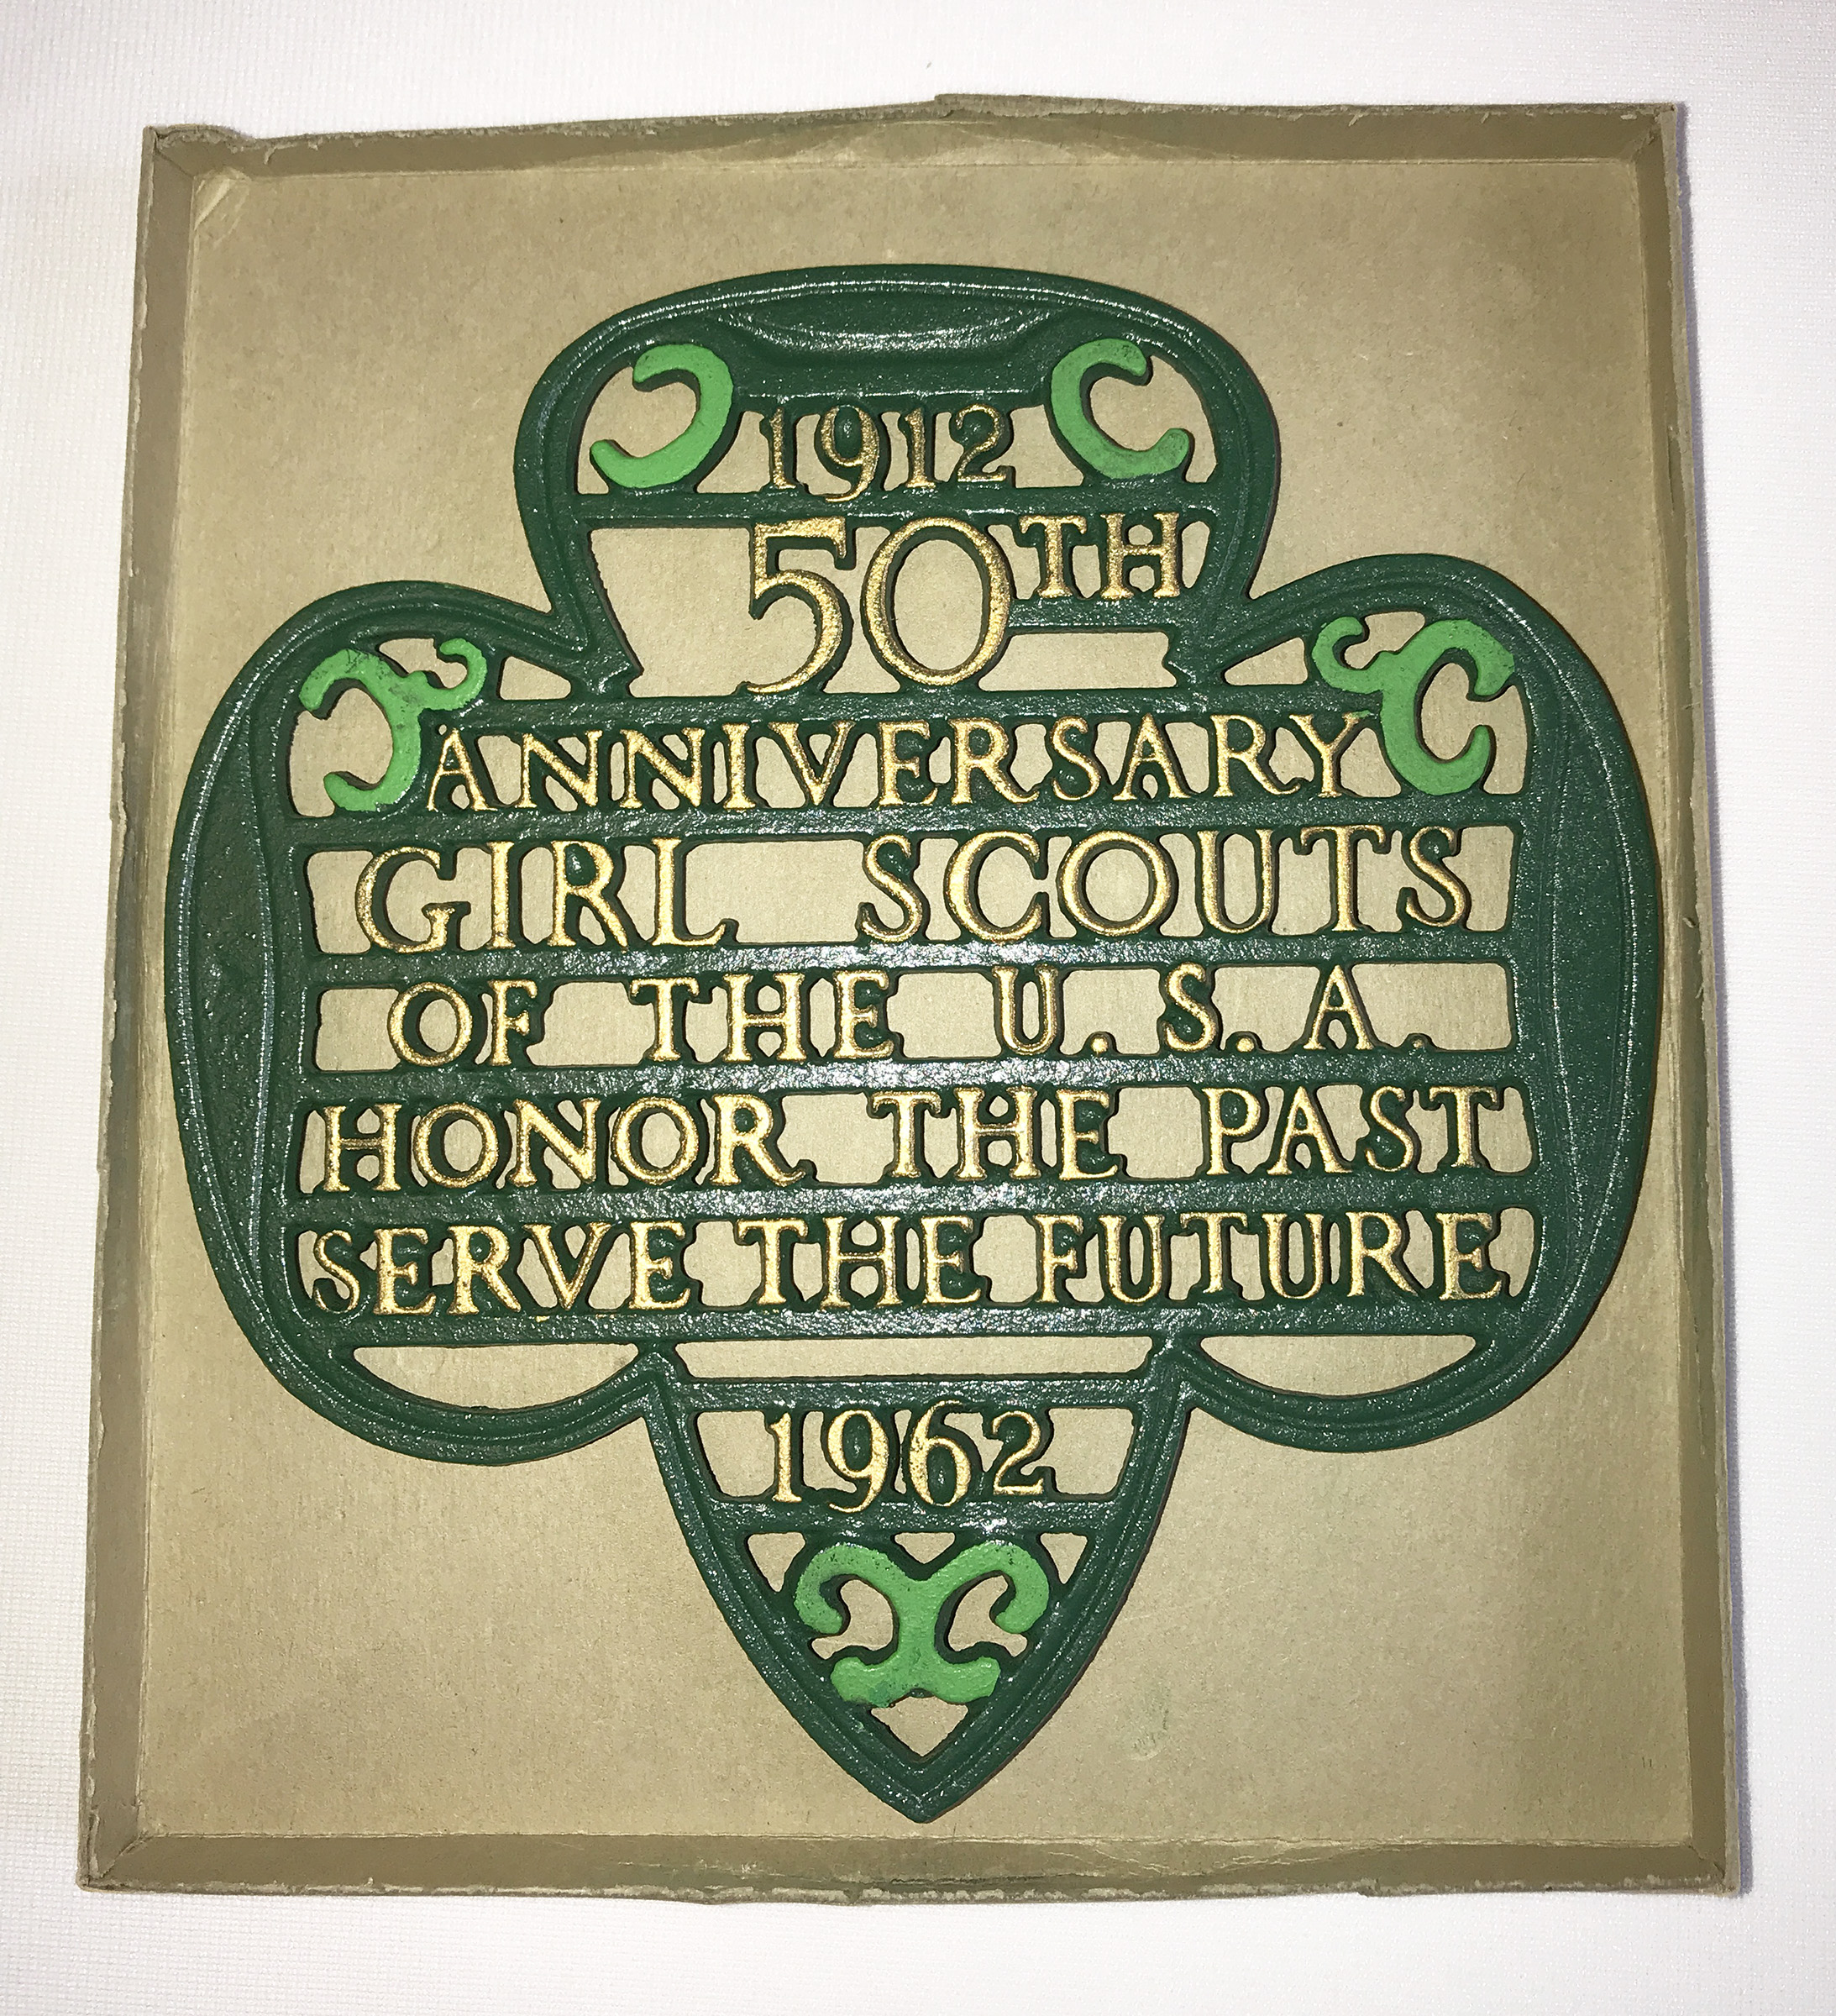 1912
50TH
ANNIVERSARY
GIRL SCOUTS
OF THE U.S.A.
HONOR THE PAST
SERVE THE FUTURE
1962